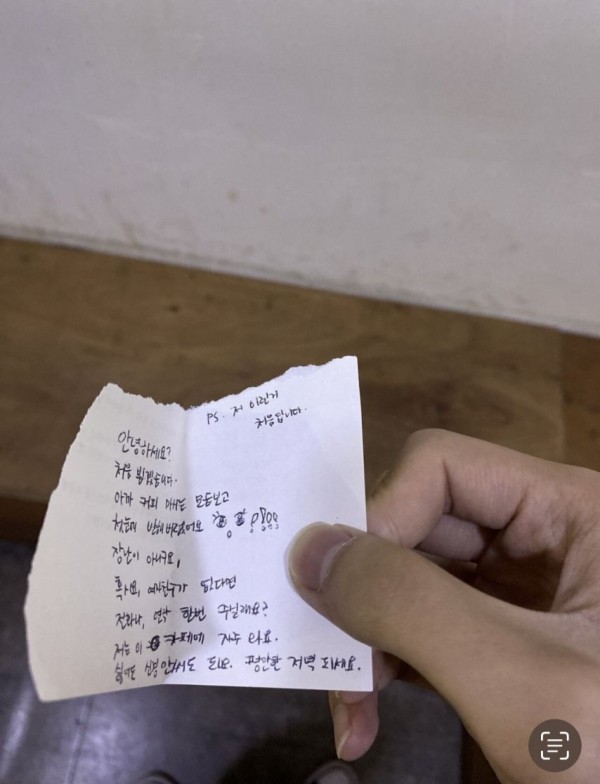 PS. 저 이런거
처음입니다.
안녕하세요?
처음 뵙겠습니다.
아까 커피 마시는 모습보고
첫눈에 반해버렸어요
장난이 아니구요,
혹시요, 여자친구가 없다면
전화나, 연락 한번 주실래요?
저는 이 카페에 자주 와요.
싫어도 신경 안써셔도 돼요. 평안한 저녁 되세요.